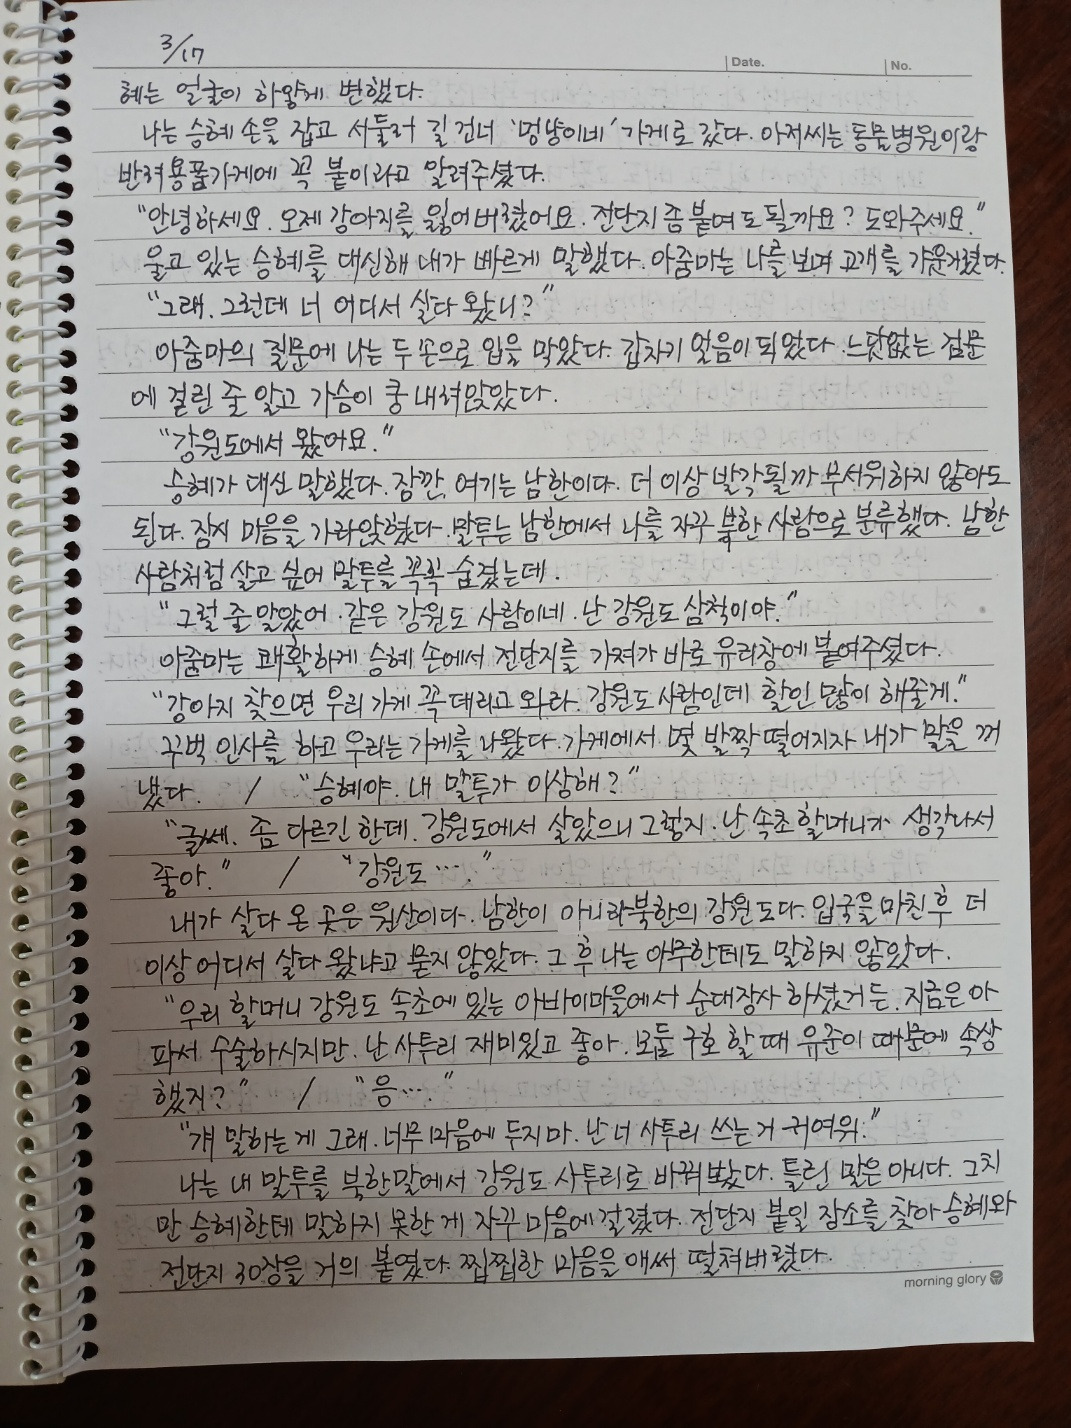 3/17
Date.
No.
혜는 얼굴이 하얗게 변했다.
나는 승혜 손을 잡고 서둘러 길 건너 '멍냥이네' 가게로 갔다. 아저씨는 동물병원이랑
반려용품가게에 꼭 붙이라고 알려주셨다.
"안녕하세요. 오제 강아지를 잃어버렸어요. 전단지 좀 붙여도 될까요? 도와주세요."
울고 있는 승혜를 대신해 내가 빠르게 말했다. 아줌마는 나를 보며 고개를 갸운거렸다.
"그래. 그런데 너 어디서 살다 왔니?"
아줌마의 질문에 나는 두 손으로 입을 막았다. 갑자기 얼음이 되었다. 느닷없는 검문
에 걸린 줄 알고 가슴이 쿵 내려앉았다.
"강원도에서 왔어요."
승혜가 대신 말했다. 잠깐, 여기는 남한이다. 더 이상 발각될까 무서워하지 않아도
된다. 잠시 마음을 가라앉혔다. 말투는 남한에서 나를 자꾸 북한 사람으로 분류했다. 남한
사람처럼 살고 싶어 말투를 꼭꼭 숨겼는데.
"그럴 줄 알았어. 같은 강원도 사람이네. 난 강원도 삼척이야."
아줌마는 쾌활하게 승혜 손에서 전단지를 가져가 바로 유리창에 붙여주셨다.
"강아지 찾으면 우리 가게 꼭 데리고 와라. 강원도 사람인데 할인 많이 해줄게."
꾸벅 인사를 하고 우리는 가게를 나왔다. 가게에서 몇 발짝 떨어지자 내가 말을 꺼
냈다. / "승혜야. 내 말투가 이상해?"
"글쎄. 좀 다르긴 한데. 강원도에서 살았으니 그렇지. 난 속초 할머니가 생각나서
좋아." / "강원도…."
내가 살다 온 곳은 원산이다. 남한이 아니라 북한의 강원도다. 입국을 마친 후 더
이상 어디서 살다 왔냐고 묻지 않았다. 그 후 나는 아무한테도 말하지 않았다.
"우리 할머니 강원도 속초에 있는 아바이마을에서 순대장사 하셨거든. 지금은 아
파서 수술하시지만. 난 사투리 재미있고 좋아. 모둠 구호 할 때 유준이 때문에 속상
했지?" / "음…."
"걔 말하는 게 그래. 너무 마음에 두지 마. 난 너 사투리 쓰는 거 귀여워."
나는 내 말투를 북한말에서 강원도 사투리로 바꿔 봤다. 틀린 말은 아니다. 그치
만 승혜한테 말하지 못한 게 자꾸 마음에 걸렸다. 전단지 붙일 장소를 찾아 승혜와
전단지 30장을 거의 붙였다. 찝찝한 마음을 애써 떨쳐버렸다.
morning glory